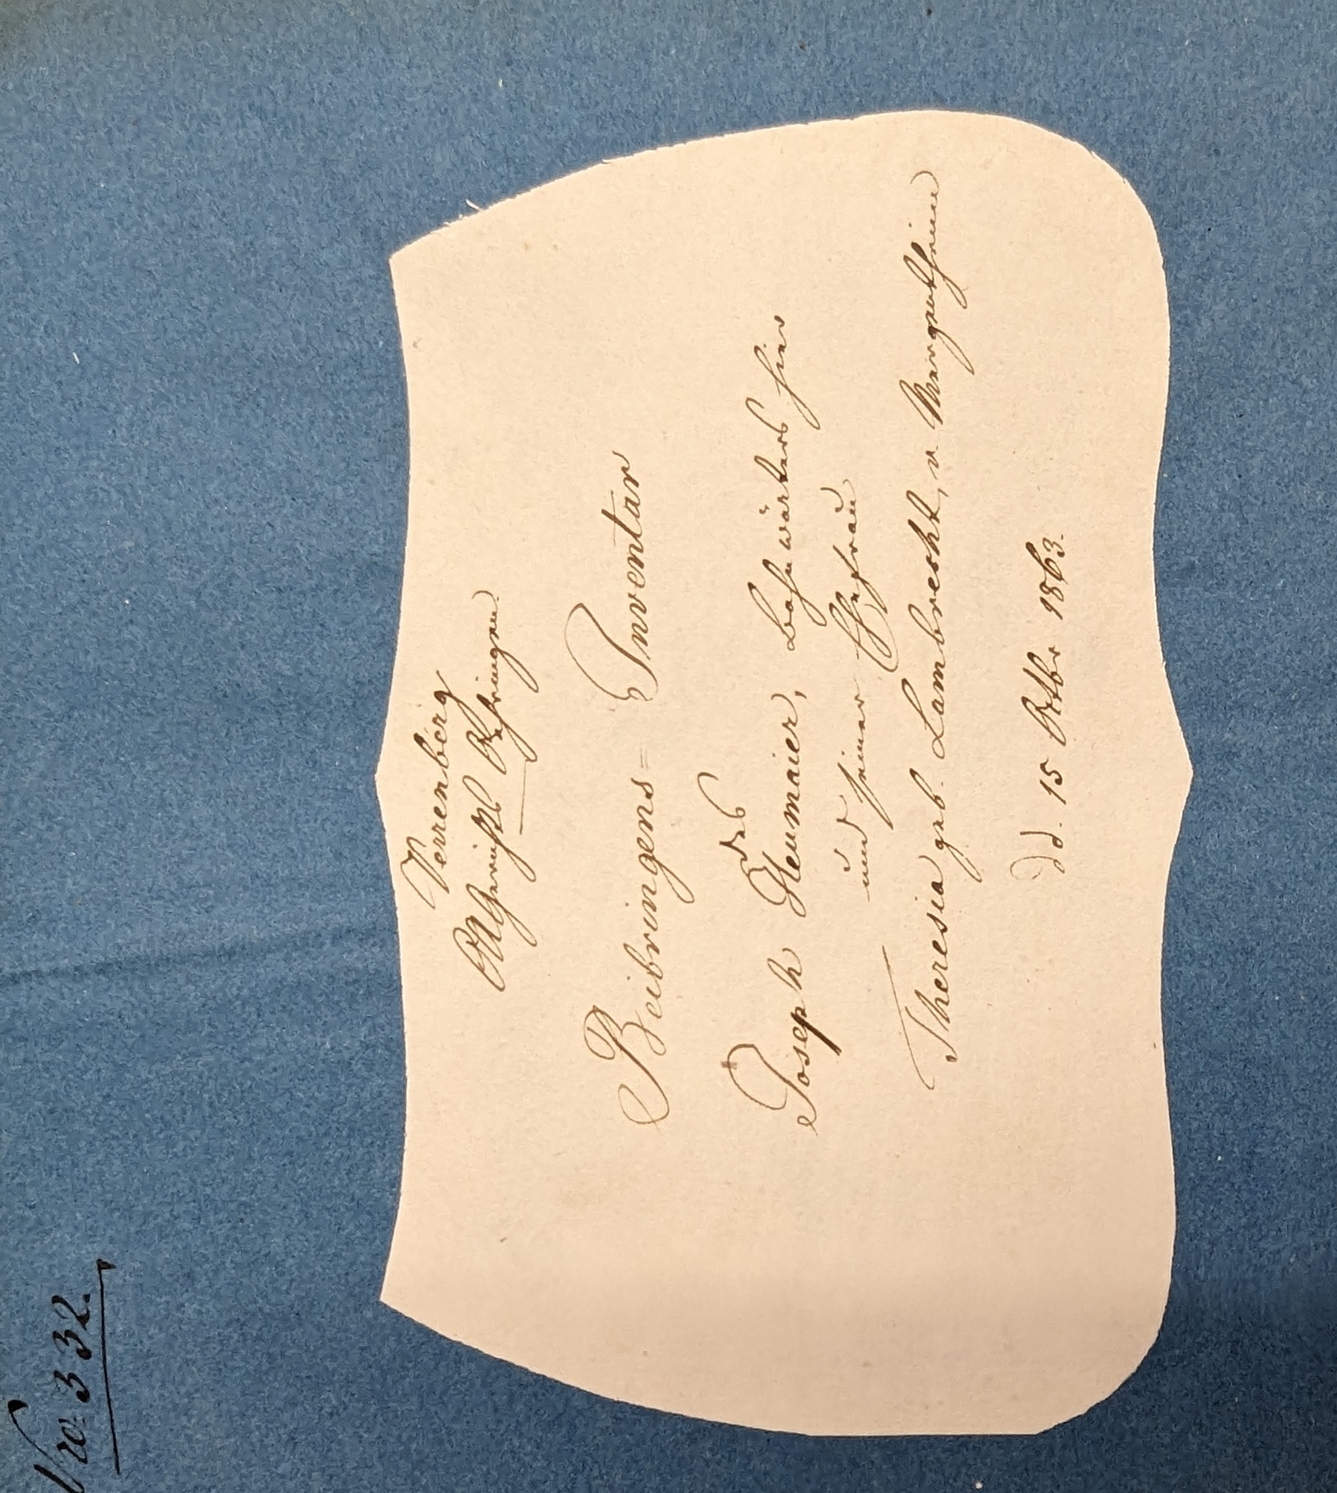 Nro. 332.
Verrenberg
OAGerichts Oehringen.
Beibringens= Inventar
des
Joseph Neumaier, Bahnwärters hier
und seiner Ehefrau
Theresia geb. Lambrecht, v. Mergentheim
dd. 15 Oktbr 1863.